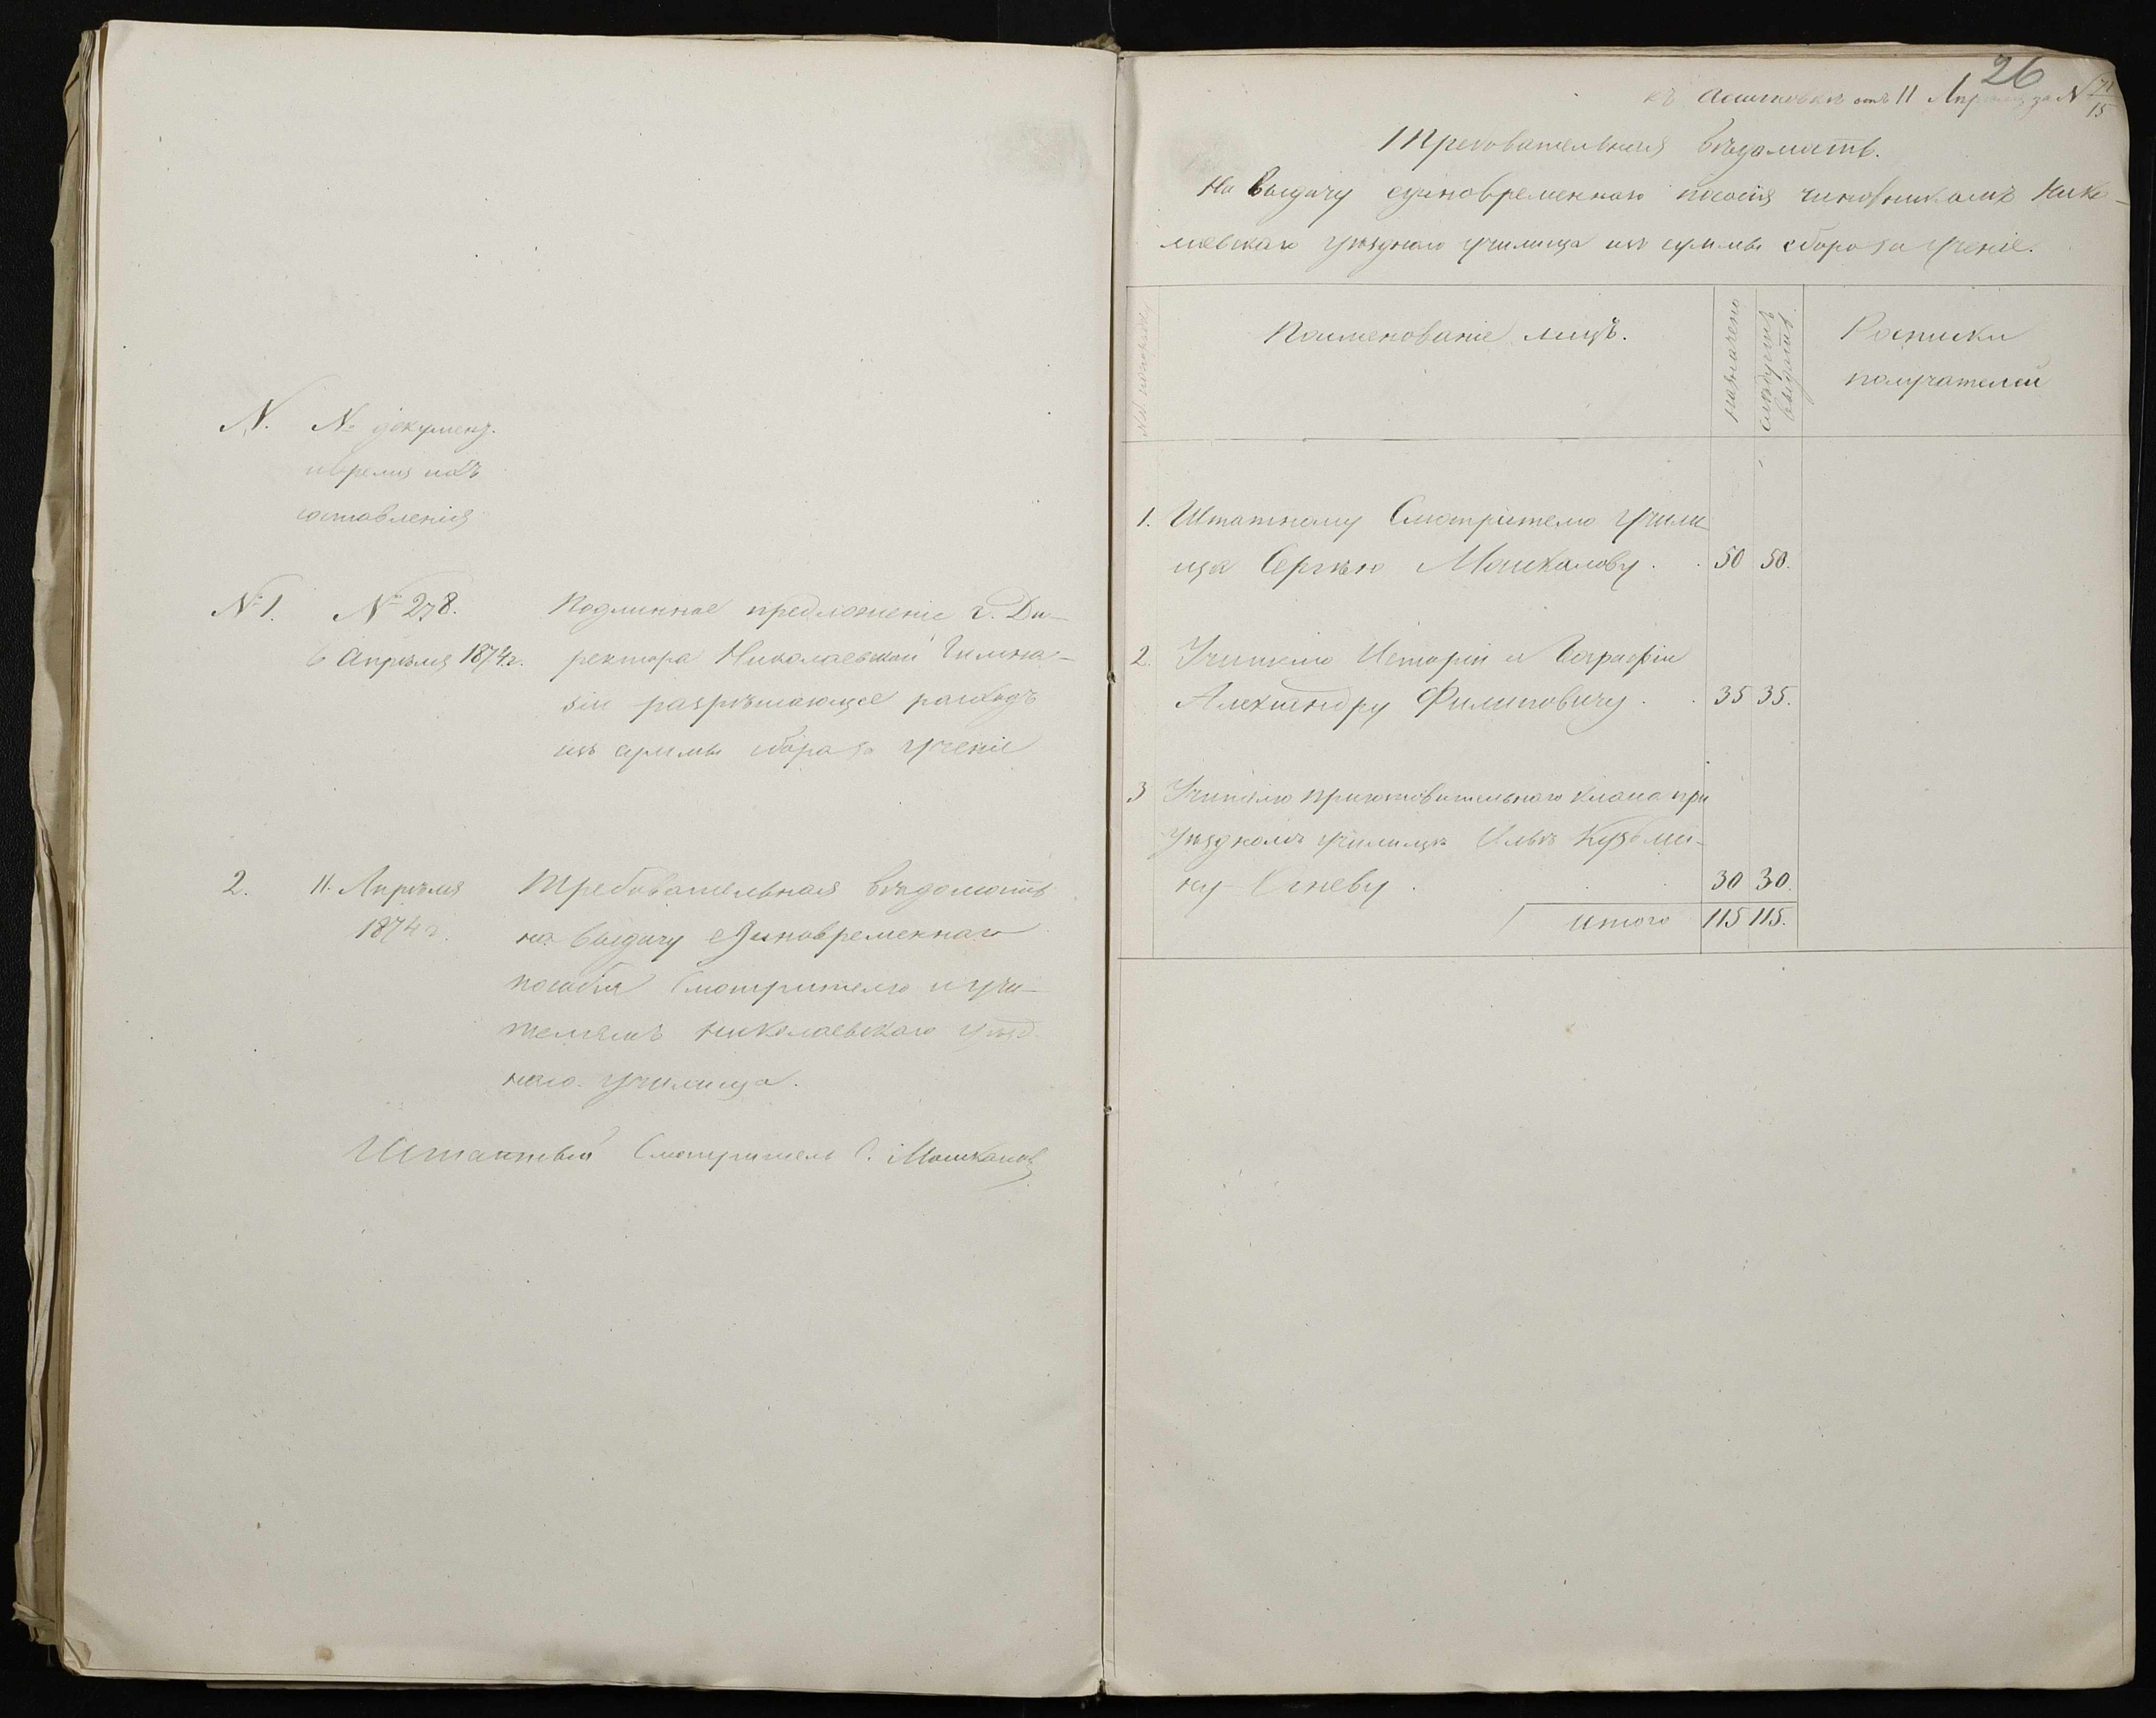 N. № документ.
и время ихъ
составленія
№ 1. № 278. Подлинное предложеніе г. Ди-
6 Апрѣля 1874 г. ректора Николаевской Гимна-
зіи разрѣшающее расходъ
изъ суммы сбора за ученіе
2. 11. Апрѣля Требовательная вѣдомость
1874 г. на выдачу единовременнаго
пособія Смотрителю и учи-
телямъ Николаевскаго уѣзд-
наго училища.
Штатный Смотритель С. Мошкаловъ
26
къ отъ 11 Апрѣля за № 71/15
Требовательная вѣдомость.
На выдачу единовременнаго пособія чиновникамъ Нико-
лаевскаго уѣзднаго училища изъ суммы сбора за ученіе.
№№ по порядку
Наименованіе лицъ.
назначено
слѣдуетъ выдать.
Росписки
получателей
1. Штатному Смотрителю учили-
ща Сергѣю Мошкалову. 50 50.
2. Учителю Исторіи и Географіи
Александру Филиповичу. 35 35.
3 Учителю приготовительнаго класса при
уѣздномъ училищѣ Ильѣ Кузьми-
ну- 30 30.
итого 115 115.